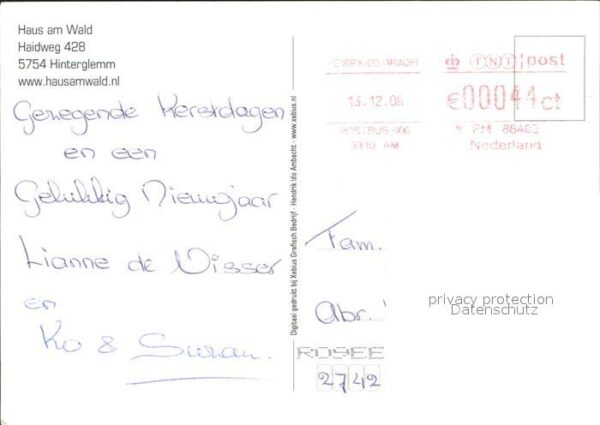 Haus am Wald
Haidweg 428
5754 Hinterglemm
www.hausamwald.nl
Gezegende Kerstdagen
en een
Gelukkig Nieuwjaar
Lianne de Visser
en
Ko & Suzan.
Digitaal gedrukt bij Xebius Grafisch Bedrijf - Hendrik Ido Ambacht - www.xebius.nl
H.I.AMBACHT
13.12.06
POSTBUS
AM
TNT post
€00044ct
FM 86403
Nederland
Fam.
Abr.
privacy protection
Datenschutz
2742